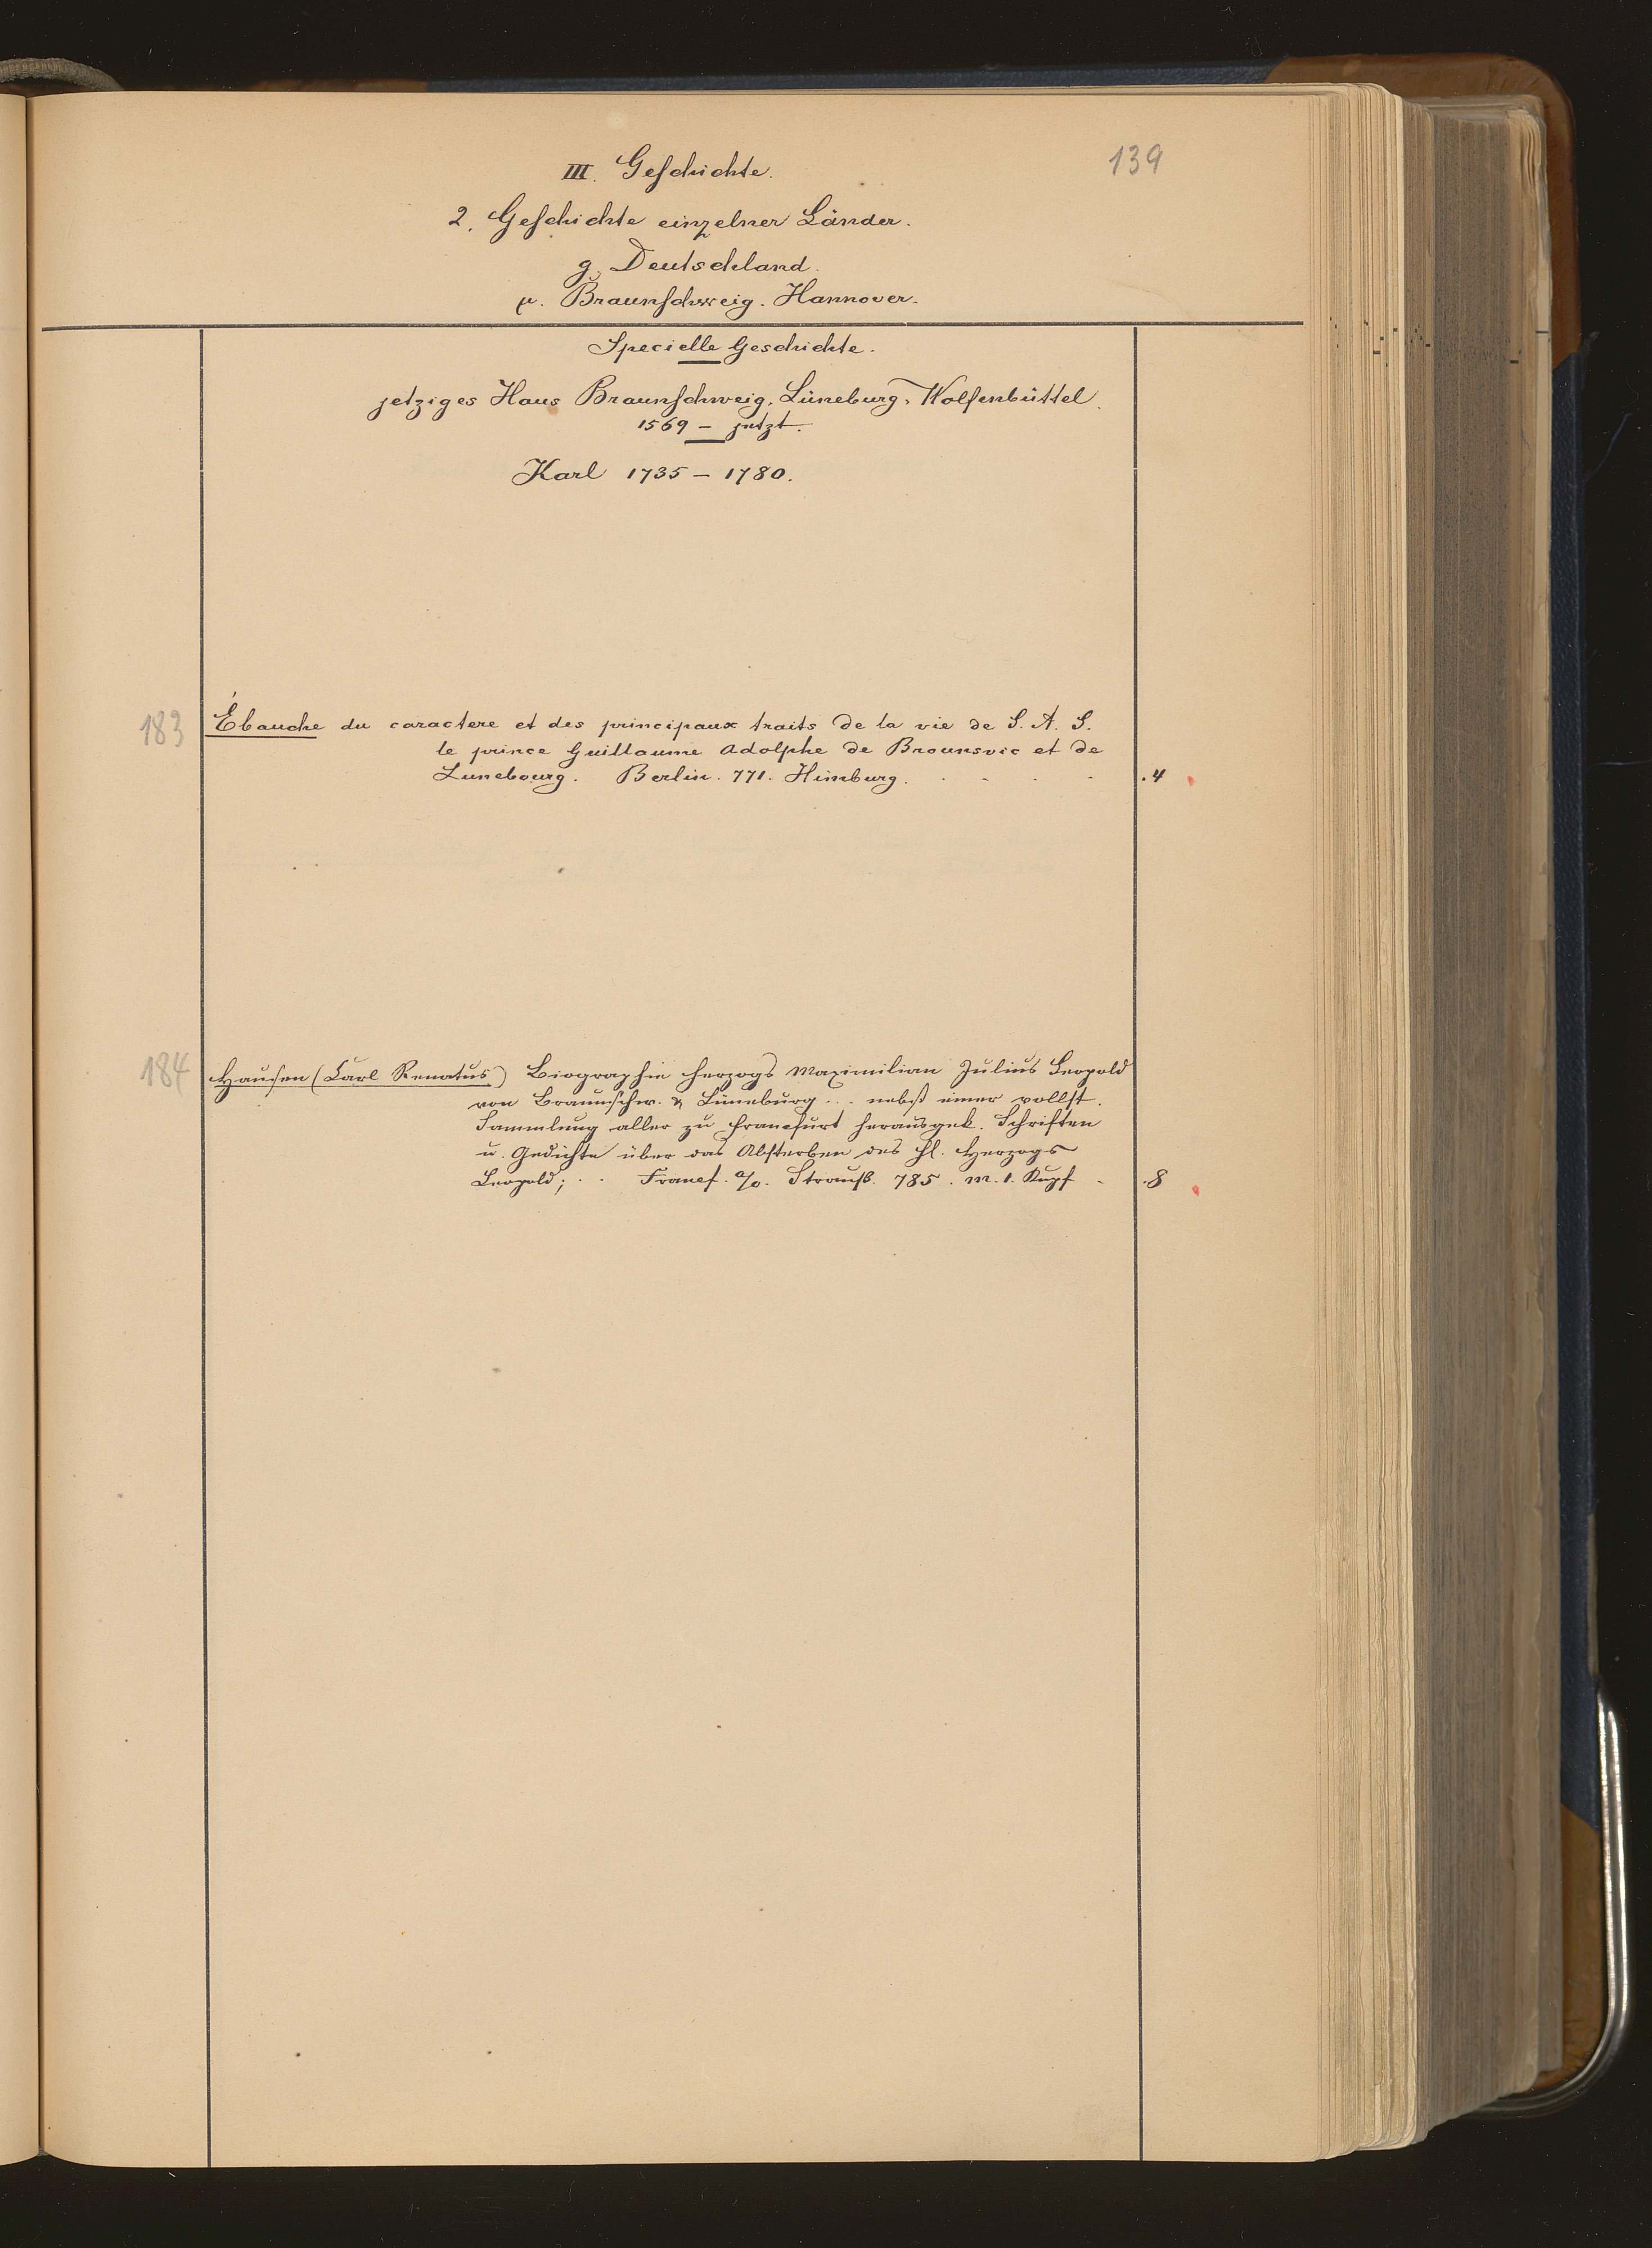 139
III. Geschichte.
2. Geschichte einzelner Länder.
g. Deutschland.
µ. Braunschweig. Hannover.
Specielle Geschichte.
jetziges Haus Braunschweig, Lüneburg, Wolfenbüttel.
1569 – jetzt.
Karl 1735 – 1780.
183 Ébauche du caractere et des principaux traits de la vie de S. A. S.
le prince Guillaume Adolphe de Brounsvic et de
Lunebourg. Berlin. 771. Himburg. . - . - .4
184 Hausen (Carl Renatus) Biographie Herzogs Maximilian Julius Leopold
von Braunschw. & Lüneburg... nebst einer vollst.
Sammlung aller zu Francfurt herausgek. Schriften
u. Gedichte über das Absterben des hl. Herzogs
Leopold; . . Francf. a/o. Strauß. 785. m. 1. Kupf - .8